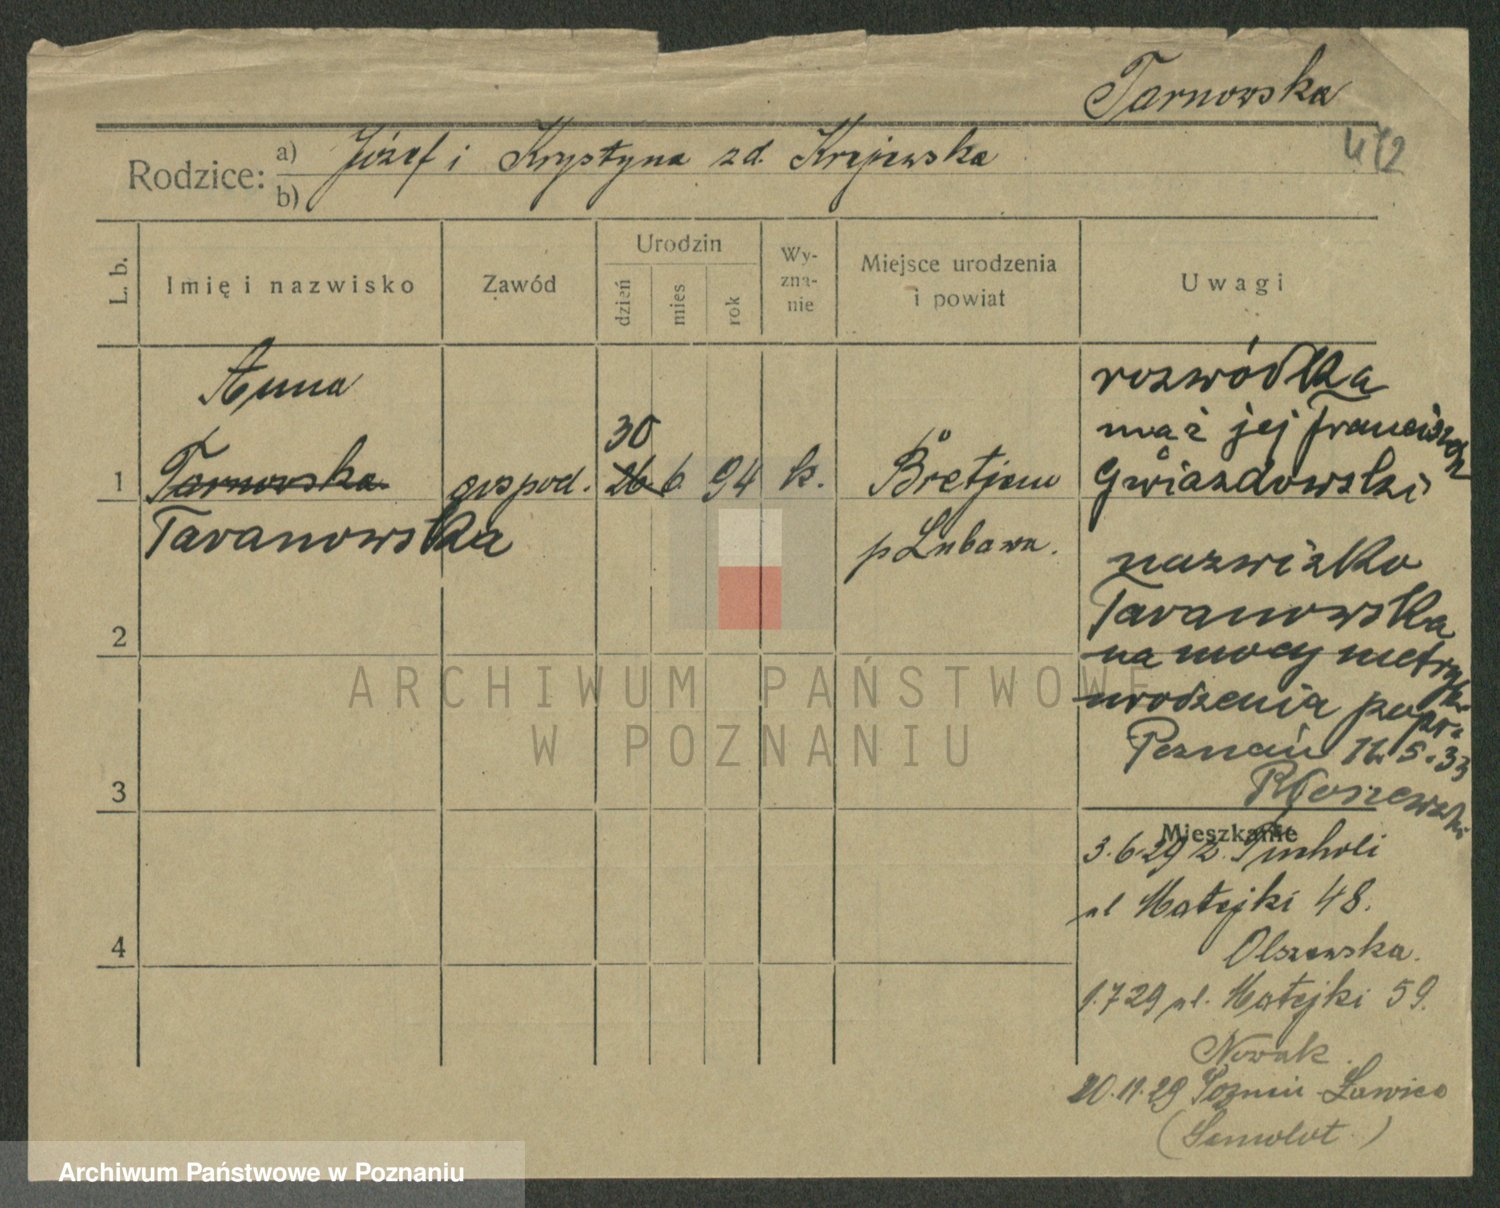 Tarnowska
Rodzice: a) Józef i Krystyna zd. Krajewska
b)
L. b.
Imię i nazwisko
Zawód
Urodzin
dzień
mies
rok
Wy-
zna-
nie
Miejsce urodzenia
i powiat
Uwagi
Anna
30
1 Tarnowska gospod. 26 6 94 k. Bretjem
Taranowska
p Lubawa.
2
3
4
rozwódka
mąż jej Franciszek
Gwiazdowski
nazwisko
Taranowska
na mocy metryki
urodzenia popr.
Poznań 16.5.33
Mieszkanie
3.6.29 z Tucholi
ul Matejki 48.
Olszewska.
1.7.29 ul. Matejki 59.
Nowak.
20.11.29 Poznań-Ławica
(Samolot)
ARCHIWUM PAŃSTWOWE
W POZNANIU
Archiwum Państwowe w Poznaniu